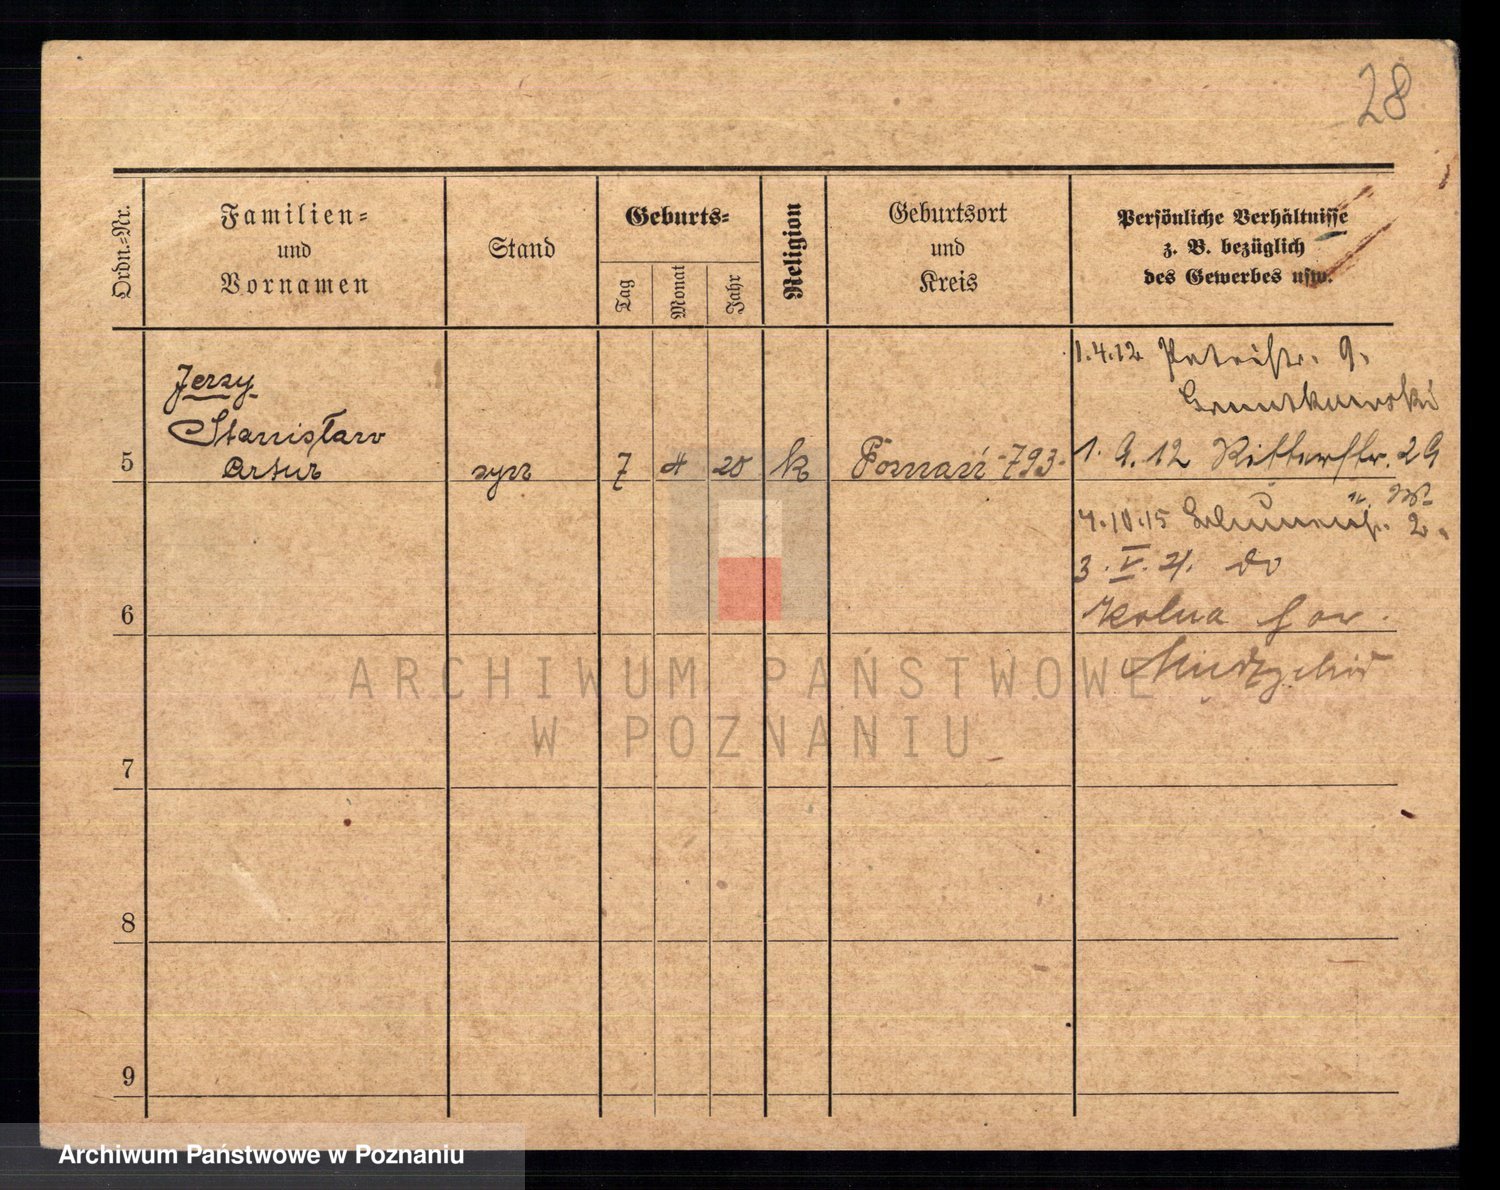 28
Ordn.-Nr.
Familien-
und
Vornamen
Stand
Geburts-
Tag
Monat
Jahr
Religion
Geburtsort
und
Kreis
Persönliche Verhältnisse
z. B. bezüglich
des Gewerbes usw.
Jerzy
Stanisław
Artur
5
syn
7
4
20
k
Poznań -793-
1.4.12 Petristr. 9.
1. 9. 12 Ritterstr. 29
4.10.15
2.
3. V. 21. do
6
7
8
9
ARCHIWUM PAŃSTWOWE
W POZNANIU
Archiwum Państwowe w Poznaniu